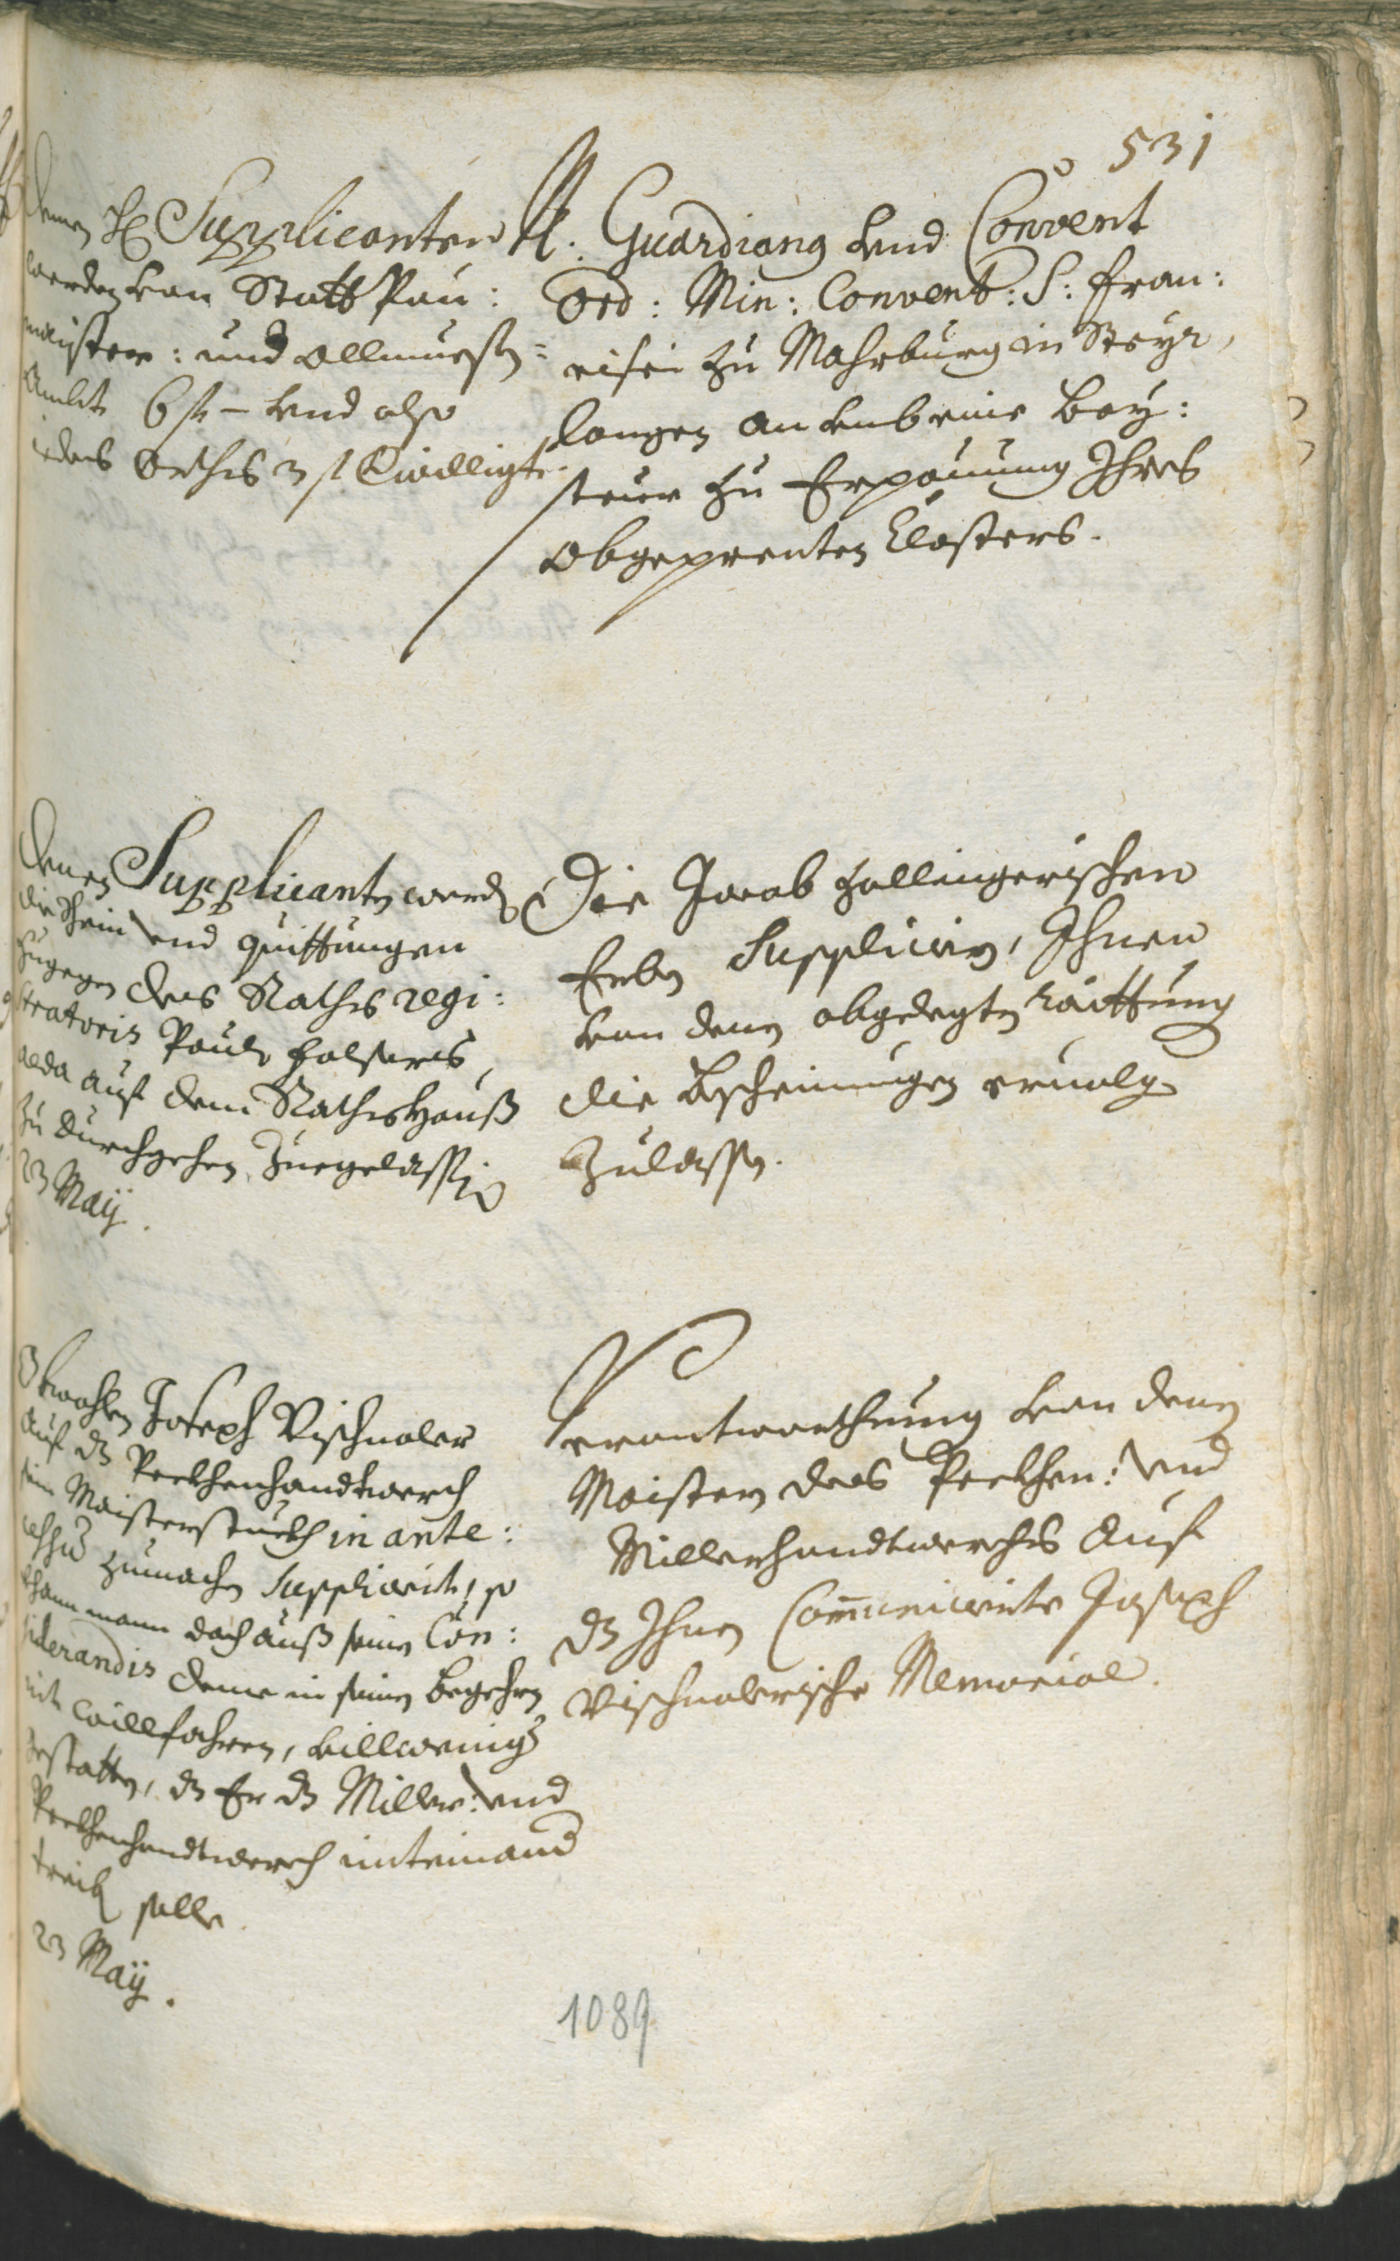 531
Denen H: Supplicanten
werden von Statt Pau:
maister: und Allmuesen=
Ambt 6 f – vnd also
iedes Orths 3 f bewilligt.
N. Guardians vnd Convent
Ord: Min: Convent: S: Fran:
cisci zu Mahrburg in Steyr,
langen an vmb eine bey:
steuer zu Erpauung Ihres
abgeprenten Closters.
Denen Supplicanten werden
die Schein vnd quittungen
zugegen des Raths regi:
stratoris Pauln
alda auf dem Rathshauß
zu durchgehen zuegelassen
23 Maÿ.
Die Jacob Hallingerischen
Erben Supplicirn, Ihnen
von denen abgelegten raittung
die bescheinungen
zulassen.
Obwohlen Joseph Vischnaler
auf dz Peckhenhandtwerch
sein Maisterstuckh in ante:
cessum zumachen Supplicirt, so
khann mann doch auß seinen Con:
siderandis deme in seinen begehren
nit willfahren, vill weniger
gestatten, dz Er dz Miller: vnd
Peckhenhandtwerch miteinand
treiben solle.
23 Maÿ.
Verantworthung von denen
Maistern des Peckhen: vnd
Millerhandtwerchs auf
dz Ihnen Communicirte Joseph
Vischnalerische Memorial.
1089